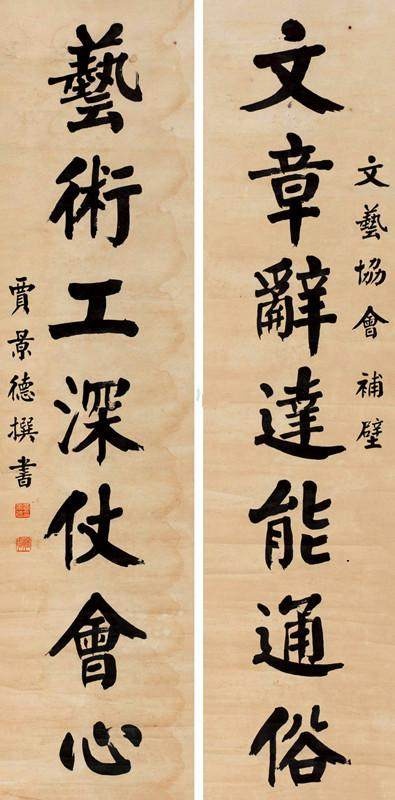 文藝協會補壁
文章辭達能通俗
藝術工深仗會心
賈景德撰書